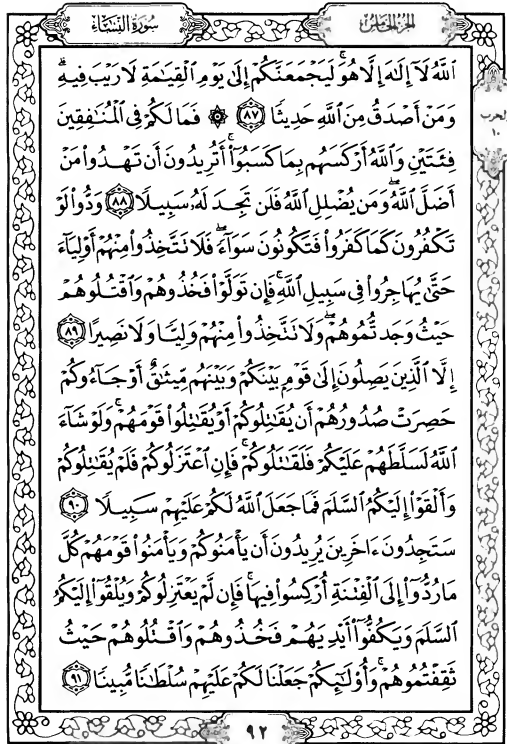 سُورَةُ النِّسَاءِ
الجزء الخامس
ٱللَّهُ لَآ إِلَٰهَ إِلَّا هُوَۚ لَيَجْمَعَنَّكُمْ إِلَىٰ يَوْمِ ٱلْقِيَٰمَةِ لَا رَيْبَ فِيهِۗ
وَمَنْ أَصْدَقُ مِنَ ٱللَّهِ حَدِيثًا ٨٧ ۞ فَمَا لَكُمْ فِى ٱلْمُنَٰفِقِينَ
الحزب
١٠
فِئَتَيْنِ وَٱللَّهُ أَرْكَسَهُم بِمَا كَسَبُوٓا۟ۚ أَتُرِيدُونَ أَن تَهْدُوا۟ مَنْ
أَضَلَّ ٱللَّهُۖ وَمَن يُضْلِلِ ٱللَّهُ فَلَن تَجِدَ لَهُۥ سَبِيلًا ٨٨ وَدُّوا۟ لَوْ
تَكْفُرُونَ كَمَا كَفَرُوا۟ فَتَكُونُونَ سَوَآءًۖ فَلَا تَتَّخِذُوا۟ مِنْهُمْ أَوْلِيَآءَ
حَتَّىٰ يُهَاجِرُوا۟ فِى سَبِيلِ ٱللَّهِۚ فَإِن تَوَلَّوْا۟ فَخُذُوهُمْ وَٱقْتُلُوهُمْ
حَيْثُ وَجَدتُّمُوهُمْۖ وَلَا تَتَّخِذُوا۟ مِنْهُمْ وَلِيًّا وَلَا نَصِيرًا ٨٩
إِلَّا ٱلَّذِينَ يَصِلُونَ إِلَىٰ قَوْمٍۭ بَيْنَكُمْ وَبَيْنَهُم مِّيثَٰقٌ أَوْ جَآءُوكُمْ
حَصِرَتْ صُدُورُهُمْ أَن يُقَٰتِلُوكُمْ أَوْ يُقَٰتِلُوا۟ قَوْمَهُمْۚ وَلَوْ شَآءَ
ٱللَّهُ لَسَلَّطَهُمْ عَلَيْكُمْ فَلَقَٰتَلُوكُمْۚ فَإِنِ ٱعْتَزَلُوكُمْ فَلَمْ يُقَٰتِلُوكُمْ
وَأَلْقَوْا۟ إِلَيْكُمُ ٱلسَّلَمَ فَمَا جَعَلَ ٱللَّهُ لَكُمْ عَلَيْهِمْ سَبِيلًا ٩٠
سَتَجِدُونَ ءَاخَرِينَ يُرِيدُونَ أَن يَأْمَنُوكُمْ وَيَأْمَنُوا۟ قَوْمَهُمْ كُلَّ
مَا رُدُّوٓا۟ إِلَى ٱلْفِتْنَةِ أُرْكِسُوا۟ فِيهَاۚ فَإِن لَّمْ يَعْتَزِلُوكُمْ وَيُلْقُوٓا۟ إِلَيْكُمُ
ٱلسَّلَمَ وَيَكُفُّوٓا۟ أَيْدِيَهُمْ فَخُذُوهُمْ وَٱقْتُلُوهُمْ حَيْثُ
ثَقِفْتُمُوهُمْۚ وَأُو۟لَٰٓئِكُمْ جَعَلْنَا لَكُمْ عَلَيْهِمْ سُلْطَٰنًا مُّبِينًا ٩١
٩٢